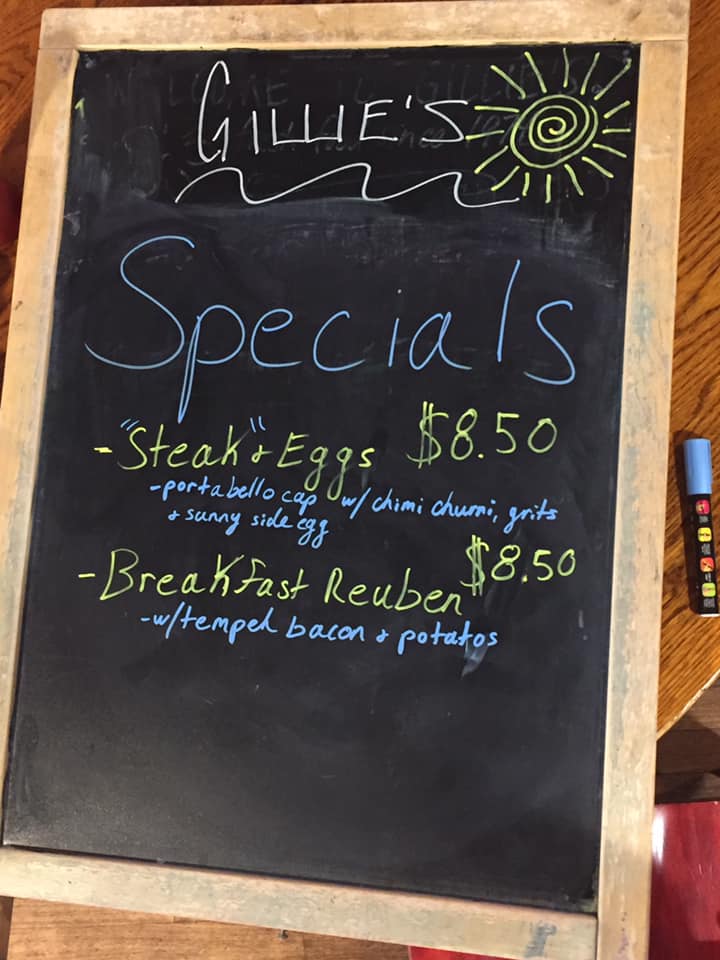 GILLIE'S
Specials
- "Steak" & Eggs $8.50
- portabello cap w/ chimi churri, grits
& sunny side egg
- Breakfast Reuben $8.50
- w/ tempeh bacon & potatos